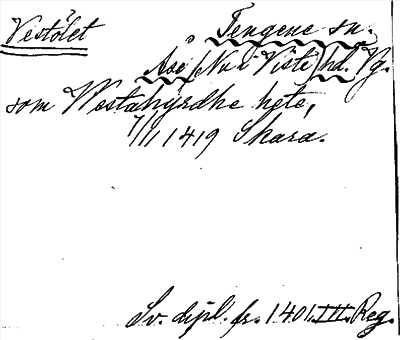 Vestölet Tengene sn.
Åse (Nu i Viste) hd. Vg.
som Westahyrdhe hete,
7/1 1419 Skara.
Sv. dipl. fr. 1401. III. Reg.